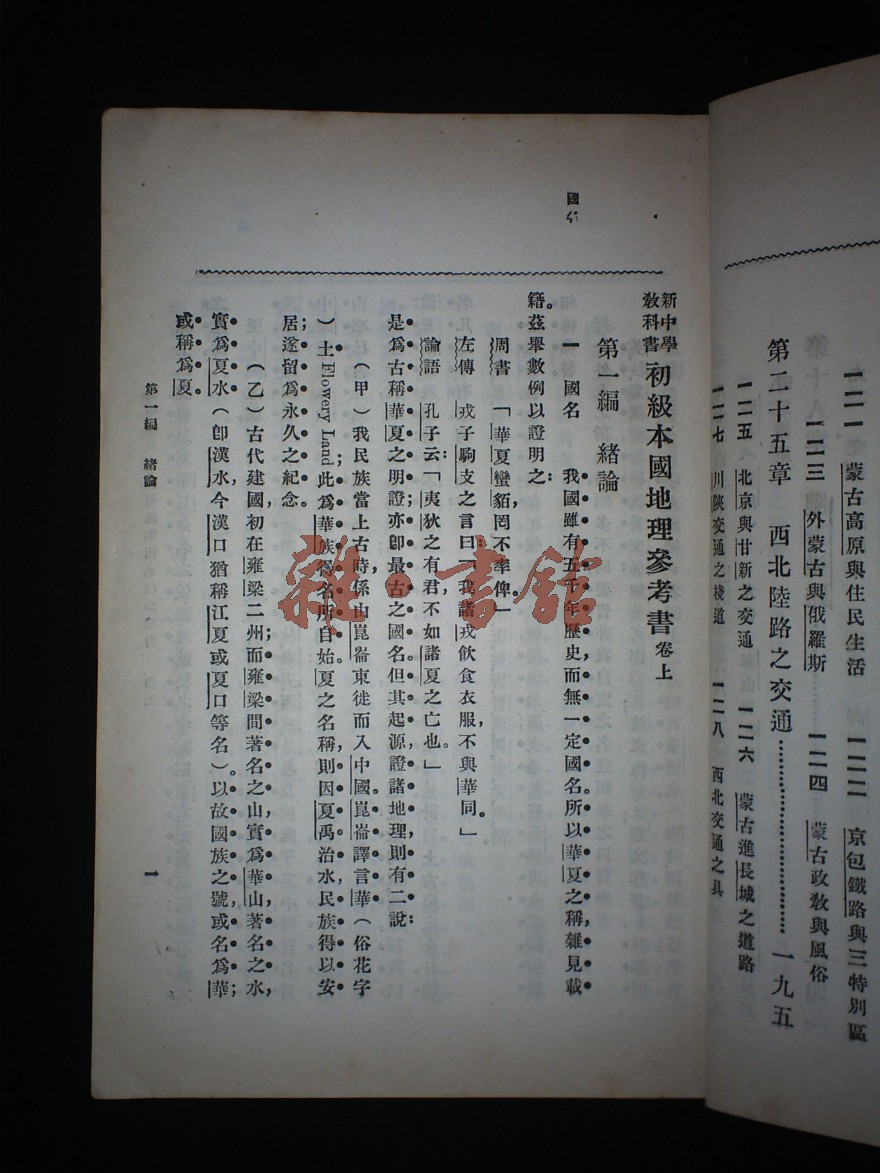 一二一　蒙古高原與住民生活　一二二　京包鐵路與三特別區
一二三　外蒙古與俄羅斯　一二四　蒙古政教與風俗
第二十五章　西北陸路之交通……一九五
一二五　北京與甘新之交通　一二六　蒙古進長城之道路
一二七　川陝交通之棧道　一二八　西北交通之具
新中學教科書　初級本國地理參考書　卷上
第一編　緒論
國名
一　國名　我國雖有五千年歷史而無一定國名。所以華夏之稱,雜見載
籍。茲舉數例以證明之:
周書　「華夏蠻貊罔不率俾」
左傳　戎子駒支之言曰:「我諸戎飲食衣服,不與華同。」
論語　孔子云:「夷狄之有君,不如諸夏之亡也。」
是為古稱華夏之明證,亦即最古之國名。但其起源證諸地理,則有二說:
(甲)我民族當上古時,係由崑崙東徙而入中國。崑崙譯言華(俗花字
)土Flowery Land;此為華族得名所自始。夏之名稱,則因夏禹治水,民族得以安
居;遂留為永久之紀念。
(乙)古代建國,初在雍梁二州;而雍梁間著名之山,實為華山,著名之水,
實為夏水(即漢水,今漢口猶稱江夏或夏口等名)。以故國族之號,或名為華;
或稱為夏
第一編　緒論
一
雜·書館